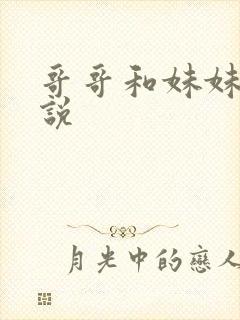 哥哥和妹妹
說
月光中的戀人